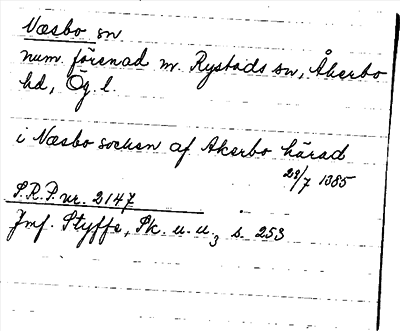 Næsbo sn
num. förenad m. Rystads sn, Åkerbo
hd, Ög. l.
i Næsbo socken af Akerbo härad
29/7 1385
S.R.P. nr. 2147
Jmf. Styffe, Sk. u. u.3 s. 253